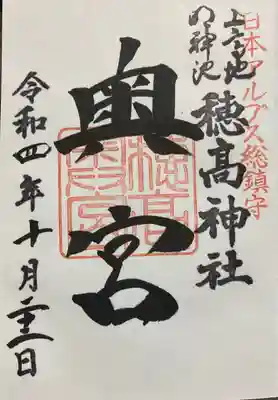 日本アルプス総鎮守
上高地
明神池
穂高神社
奥宮
令和四年十月二十三日